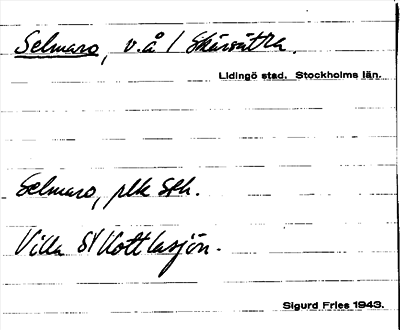 Selmaro, v.å / Skärsätra.
Lidingö stad. Stockholms län.
Selmaro, plk Sth.
Villa SV Kottlasjön.
Sigurd Fries 1943.